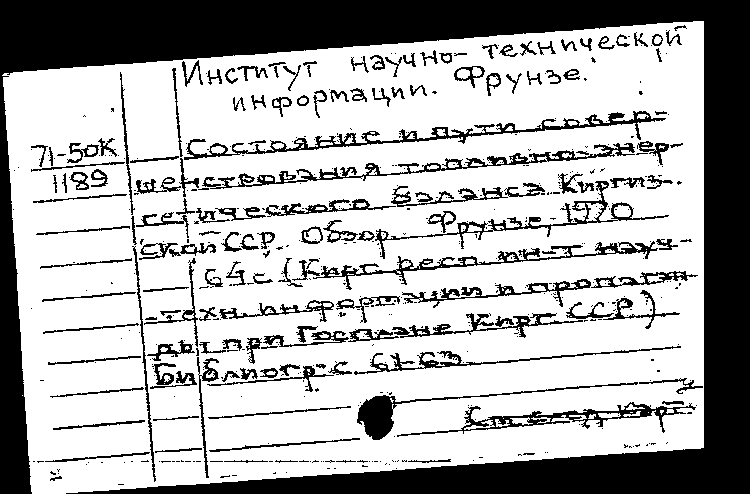 Институт научно-технической
информации. Фрунзе.
71-50К
1189
Состояние и пути совер-
шенствования топливно-энер-
гетического баланса Киргиз-
ской ССР. Обзор. Фрунзе, 1970
64 с (Кирг. респ. ин-т науч-
-техн. информации и пропаган-
ды при Госплане Кирг. ССР)
Библиогр. с. 61-63.
См. след. карт.